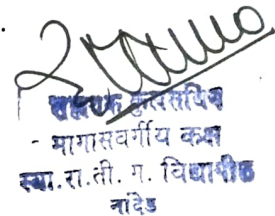 सहायक कुलसचिव
- मागासवर्गीय कक्ष
स्वा.रा.ती.म. विद्यापीठ
नांदेड